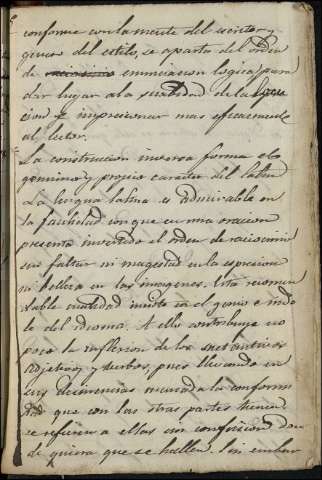 conforme con la mente del escritor y
genio del estilo, se aparta del orden
de enunciacion logica, para
dar lugar a la suavidad de la locu
cion e impresionar mas eficazmente
al lector.
La construccion inversa forma el
genuino y propio caracter del latin
La lengua latina es admirable en
la facilidad con que en una oracion
presenta invertido el orden de raciocinio
sin faltar ni magestad en la espresion
ni belleza en las imagenes. Esta recomen
dable cualidad insita en el genio e indo
le del idioma. A ello contribuye no
poco la inflexion de los sustantivos
adjetivos y verbos, pues llevando en
sus desinencias marcada la conformi
dad que con las otras partes tienen
se refieren a ellas sin confusion don
de quiera que se hallen. Sin embar